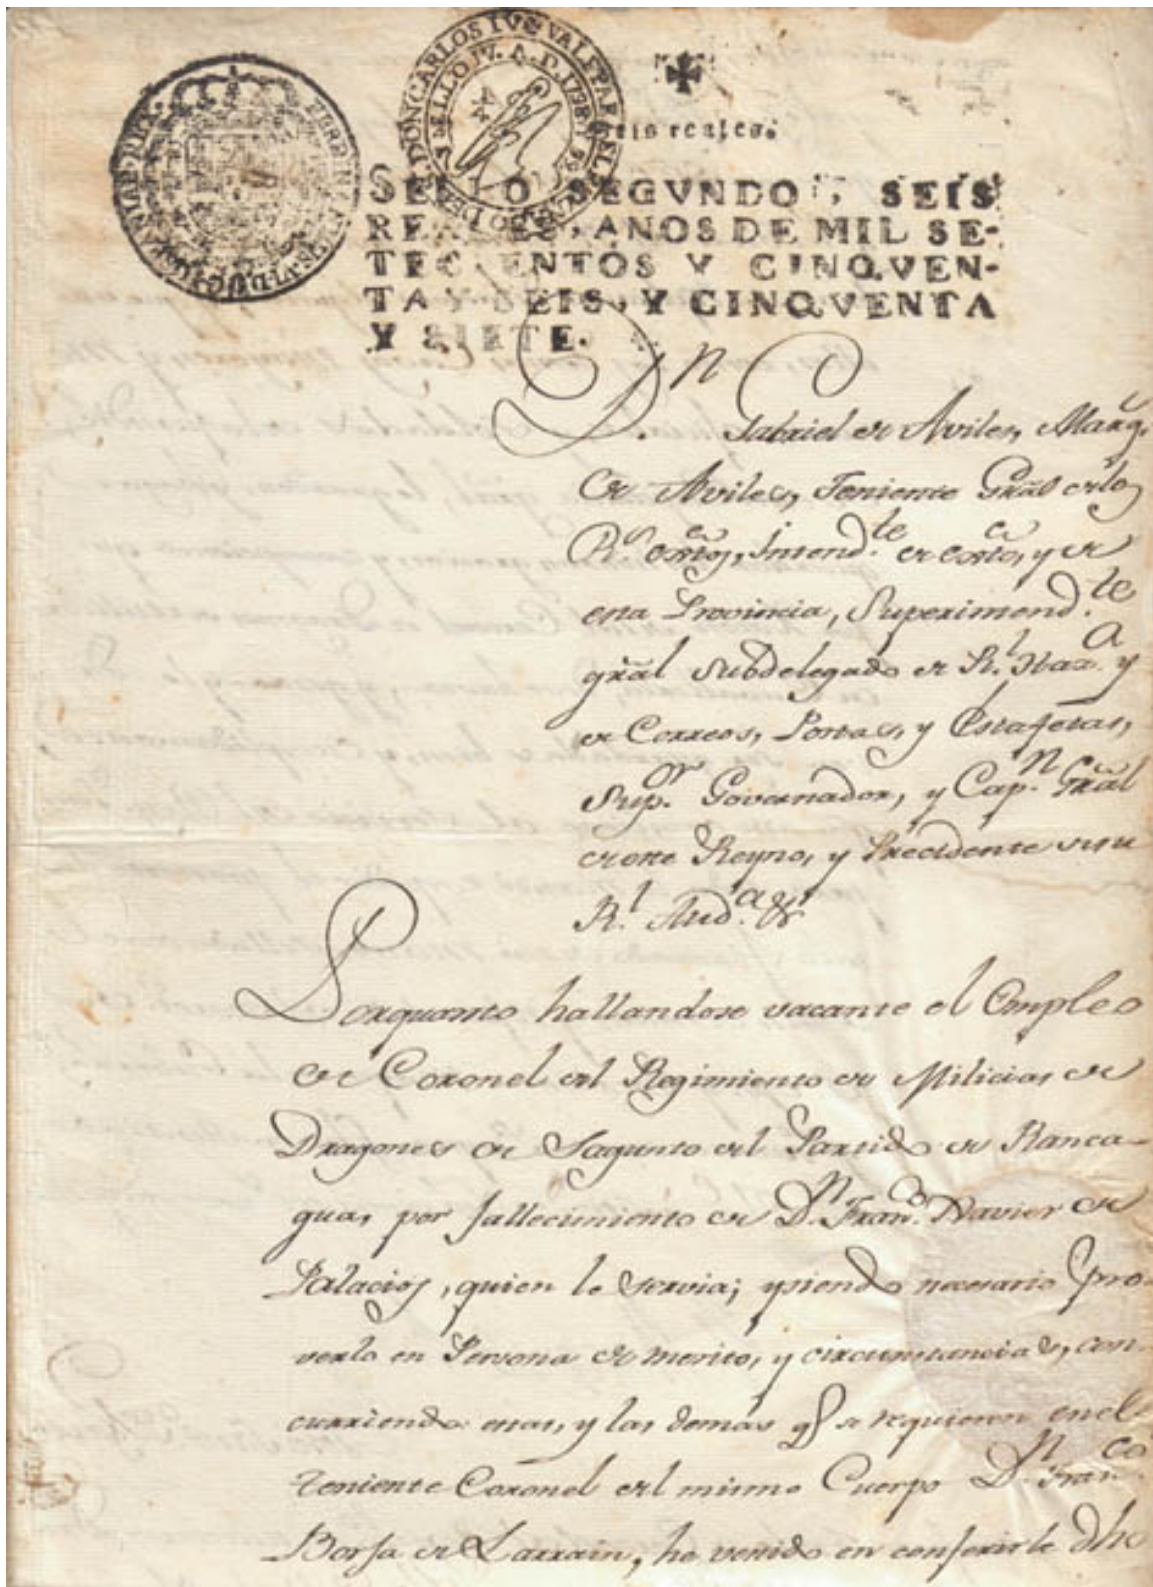 DON CARLOS IV
SELLO IV. A. D. 1798 Y 99
seis reales.
SELLO SEGVNDO, SEIS
REALES, ANOS DE MIL SE-
TECIENTOS Y CINQVEN-
TA Y SEIS, Y CINQVENTA
Y SIETE.
D.n Gabriel de Aviles, Marq.s
de Aviles, Teniente Grãl delos
R.s Extos, Intend.te de exto, y de
esta Provincia, Superintend.te
grãl subdelegado de R.l Haz.a y
de Correos, Postas, y Estafetas,
Sup.or Governador, y Cap.n Grãl
deeste Reyno, y Precidente desu
R.l Aud.a &
Porquanto hallandose vacante el Empleo
de Coronel del Regimiento de Milicias de
Dragones de Sagunto del Partido de Ranca-
gua, por fallecimiento de D.n Fran.co Xavier de
Palacios, quien le servia; ysiendo necesario pro-
verlo en Persona de merito, y circunstancias, con-
curriendo estas, y las demas q.e se requieren enel
teniente Coronel del mismo Cuerpo D.n Fran.co
Borja de Larrain, he venido en conferirle dho